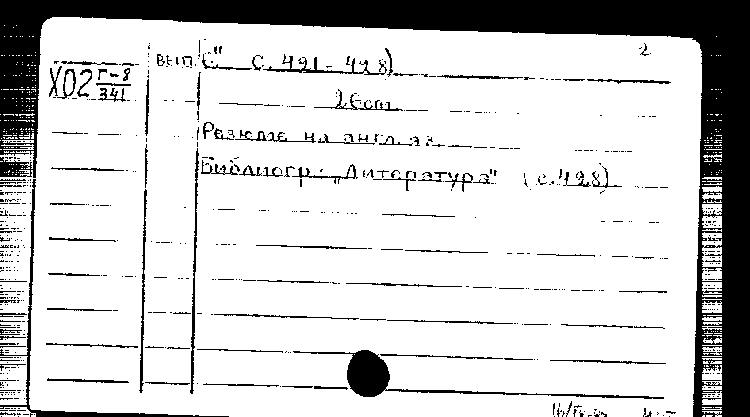 2
Х02 Г-8/341
вып. С" С. 421-428)
26см
Резюме на англ. яз.
Библиогр.: „Литература" (с. 428)